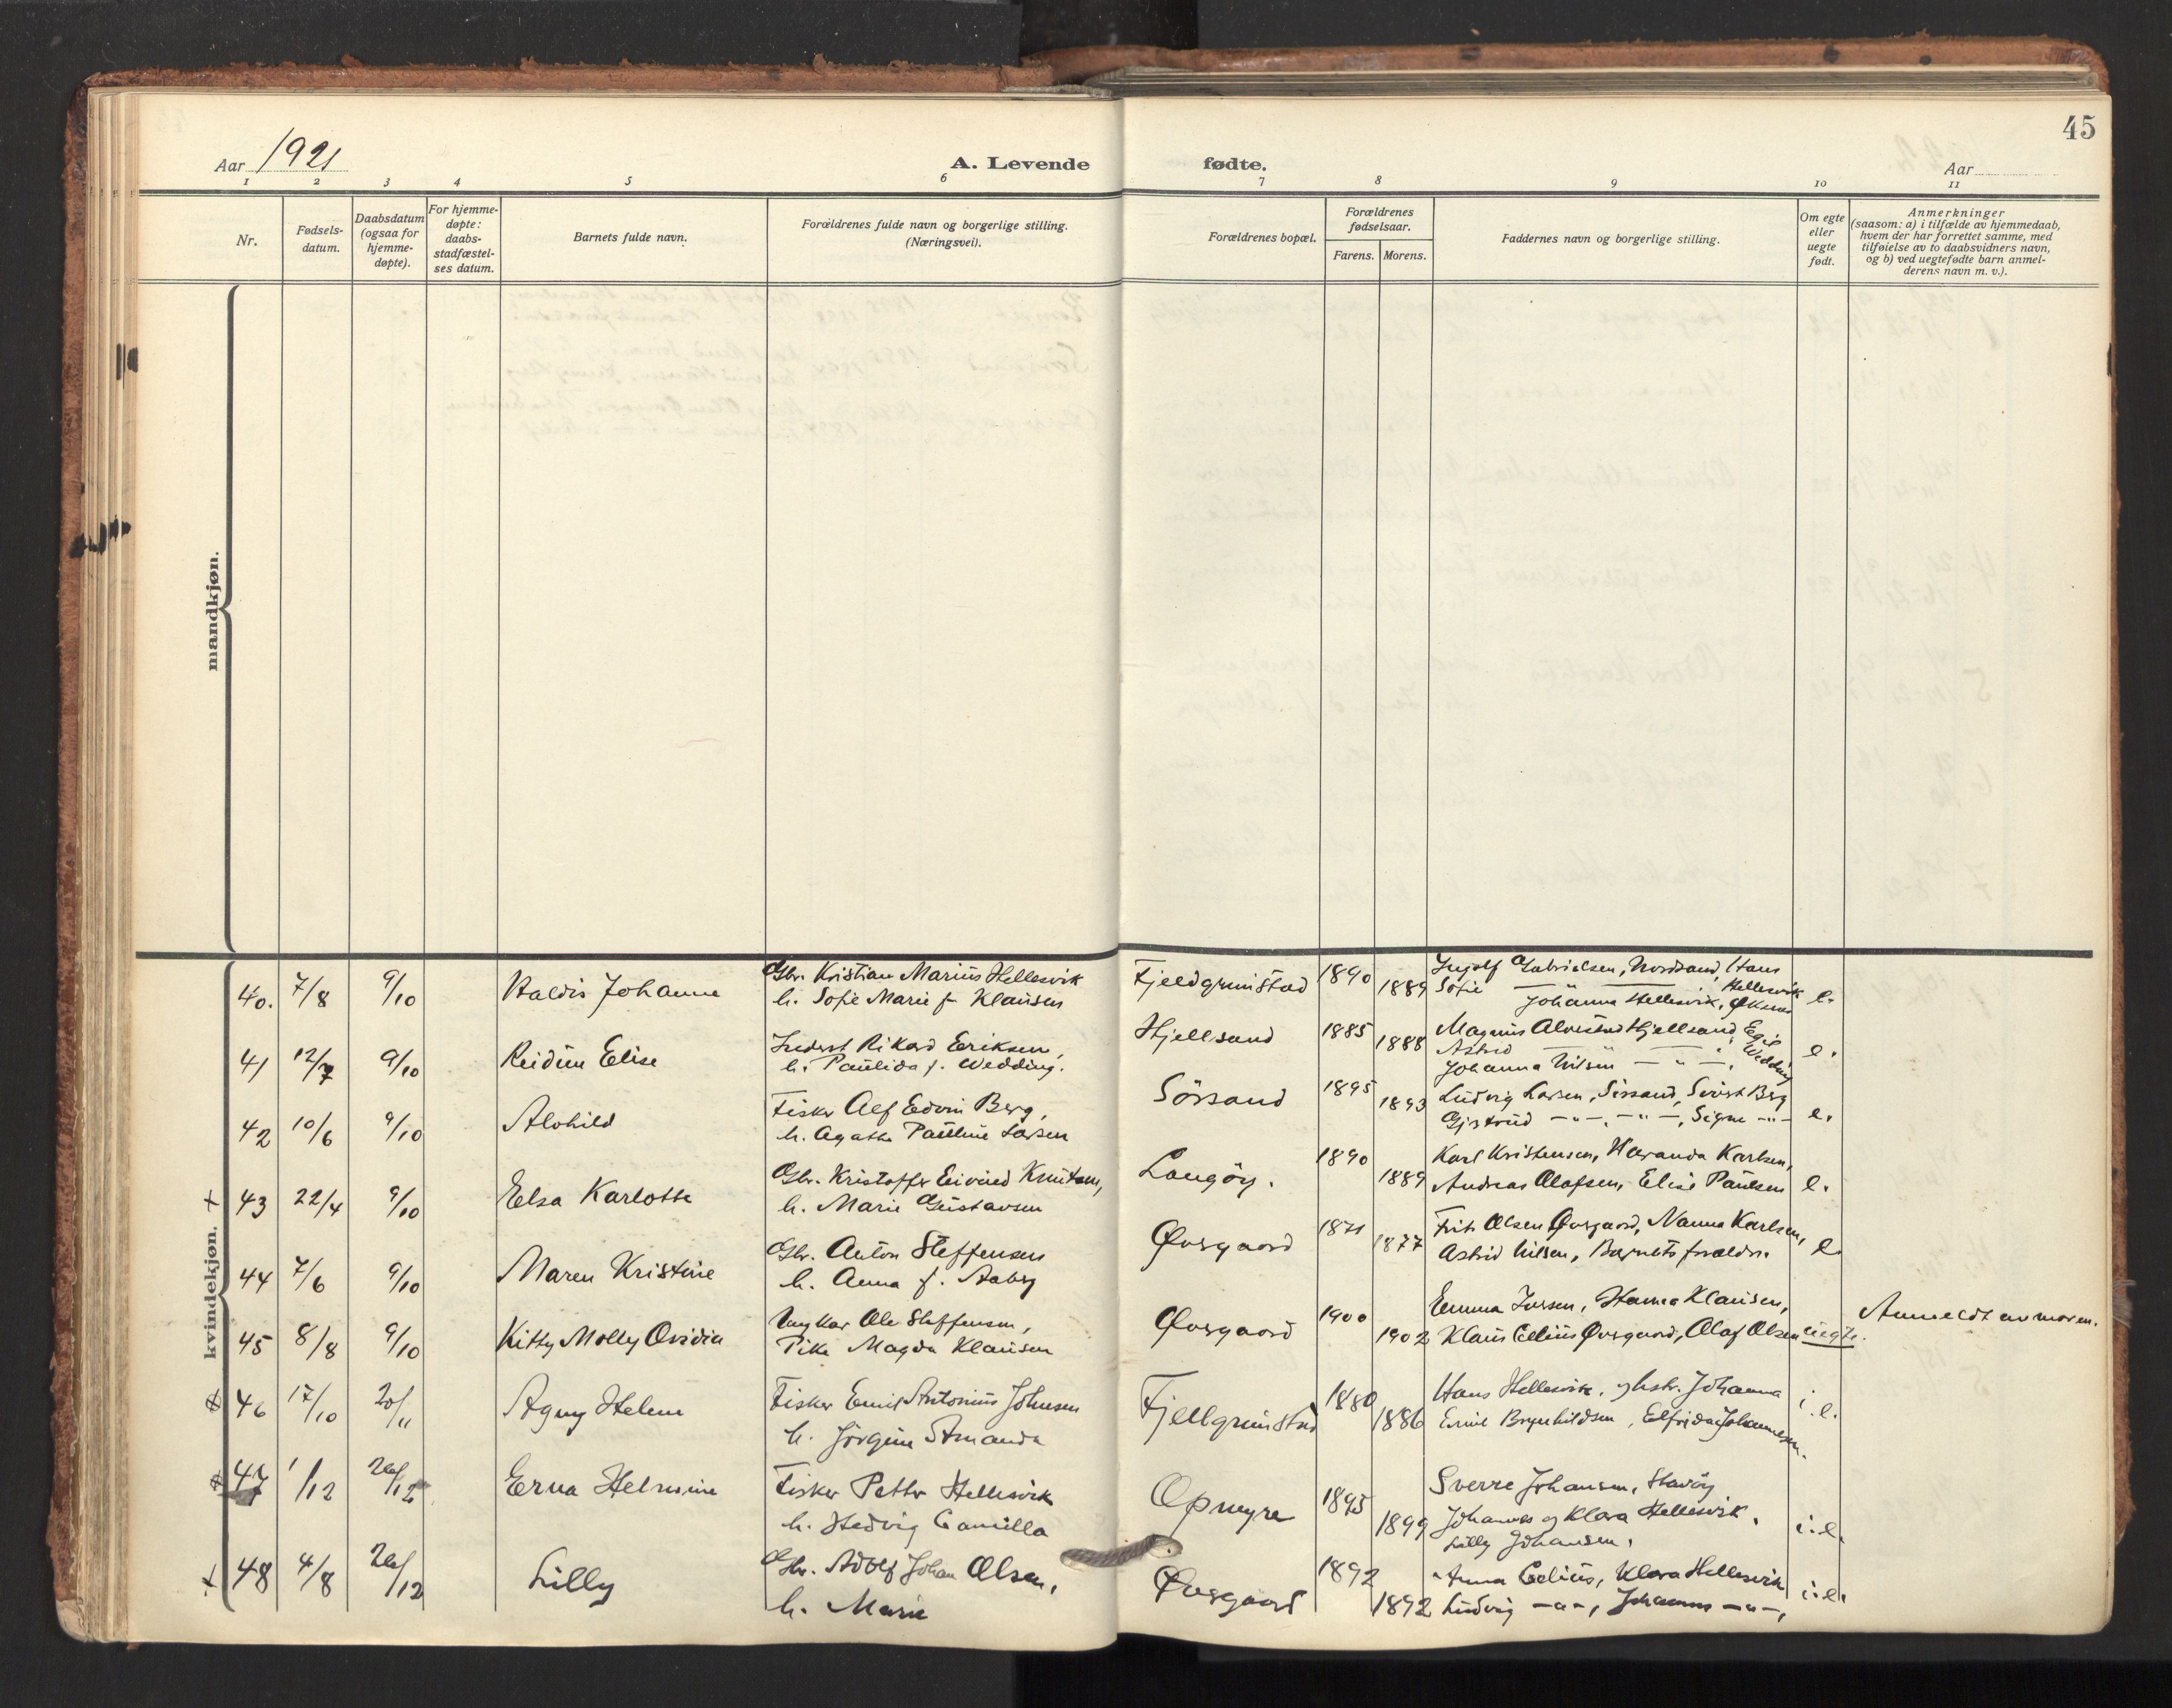 45
Aar 1921
A. Levende fødte.
Aar
1 2 3 4 5 6 7 8 9 10 11
Nr.
Fødsels-
datum.
Daabsdatum
(ogsaa for
hjemme-
døpte).
For hjemme-
døpte:
daabs-
stadfæstel-
ses datum.
Barnets fulde navn.
Forældrenes fulde navn og borgerlige stilling.
(Næringsvei).
Forældrenes bopæl.
Forældrenes
fødselsaar.
Farens. Morens.
Faddernes navn og borgerlige stilling.
Om egte
eller
uegte
født.
Anmerkninger
(saasom: a) i tilfælde av hjemmedaab,
hvem der har forrettet samme, med
tilføielse av to daabsvidners navn,
og b) ved uegtefødte barn anmel-
derens navn m. v.).
mandkjøn.
kvindekjøn.
40. 7/8 9/10 Valdis Johanne
Gbr. Kristian Marius Hellesvik
h. Sofie Marie f. Klausen
Fjeldgrimstad 1890 1889
Ingolf Gabrielsen, Nordsand, Hans Hellesvik
Sofie — Johanna Hellesvik, Øksnes
e.
41 12/7 9/10 Reidun Elise
Rikard Eriksen,
h. Paulida f. Wedding.
Hjellsand 1885 1888
Magnus Alvestad Hjellsand,
Astrid — " — Wedding
Johanna Nilsen — " —
e.
42 10/6 9/10 Alvhild
Fisker Alf Edvin Berg,
h. Agathe Pauline Larsen
Sörsand 1895 1893
Ludvig Larsen, Sörsand, Sivert Berg
Gjertrud — " —, — " —, Signe — " —
e.
+ 43 22/4 9/10 Elsa Karlotte
Gbr. Kristoffer Eivind Knutsen,
h. Marie Gustavsen
Langöy. 1890 1889
Karl Kristensen, Haranda Karlsen,
Andreas Olafsen, Elise Paulsen
e.
44 7/6 9/10 Maren Kristine
Gbr. Anton Steffensen
h. Anna f. Aaberg
Øvergaard 1871 1877
Frits Olsen Øvergaard, Nanna Karlsen,
Astrid Nilsen, Barnets forældre.
e.
45 8/8 9/10 Kitty Molly Ovidia
Ungkar Ole Steffensen,
Pike Magda Klausen
Øvergaard 1900 1902
Emma Iversen, Hanna Klausen,
Klaus Celius Øvergaard, Olaf Olsen
uegte.
Anmeldt av moren.
46 17/10 20/11 Agny Helene
Fisker Emil Antonius Johnsen
h. Jörgine Amanda
Fjellgrimstad 1880 1886
Hans Hellesvik, og hstr. Johanna
Emil Brynhildsen, Elfrida Johannesen.
i.e.
47 1/12 26/12 Erna Helmine
Fisker Petter Hellesvik
h. Hedvig Camilla
Opmyre 1895 1899
Sverre Johansen, Stavöy
Johannes og Klara Hellesvik,
Lilly Johansen.
i.e.
+ 48 4/8 26/12 Lilly
Gbr. Adolf Johan Olsen,
h. Marie
Øvergaard 1892 1892
Anna Celius, Klara Hellesvik
Ludvig — " —, Johannes — " —,
i.e.